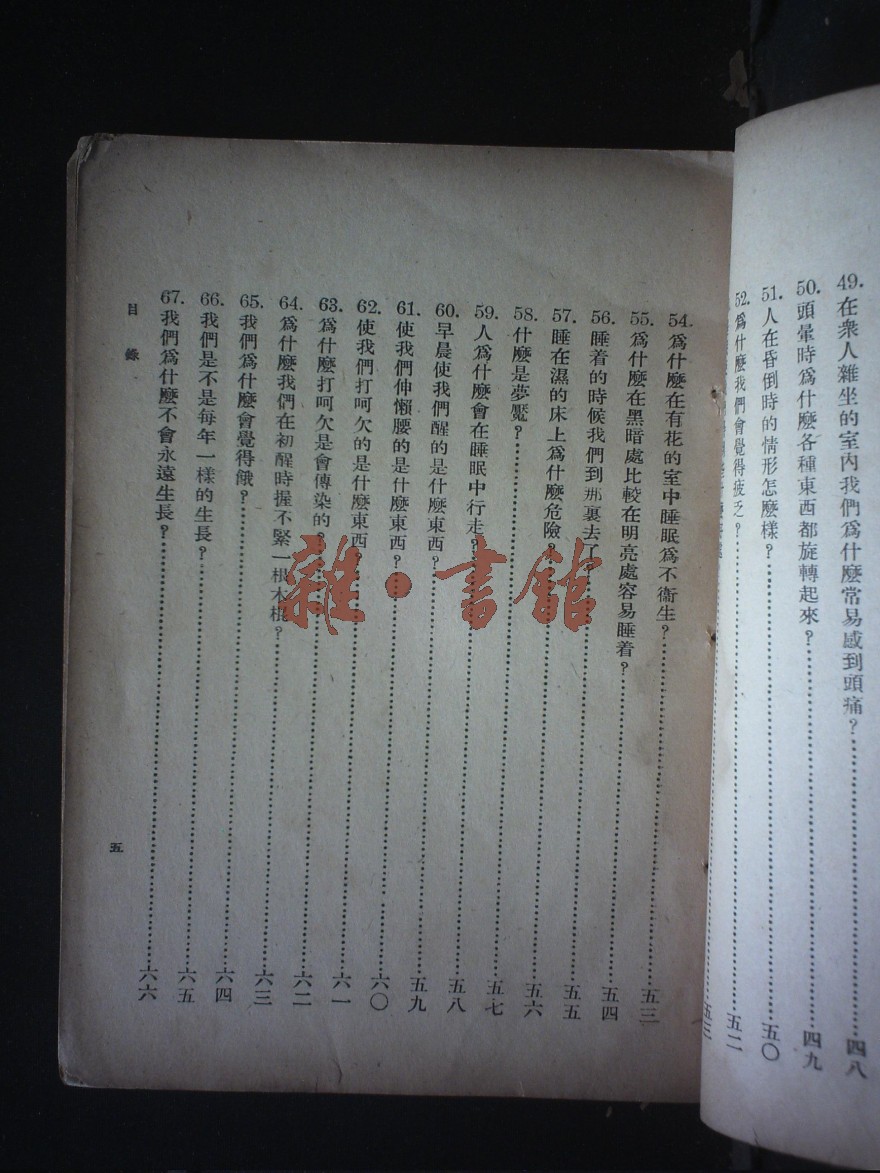 49.在衆人雜坐的室內我們爲什麼常易感到頭痛?……四八
50.頭暈時爲什麼各種東西都旋轉起來?……四九
51.人在昏倒時的情形怎麼樣?……五〇
52.爲什麼我們會覺得疲乏?……五二
五三
54.爲什麼在有花的室中睡眠爲不衞生?……五三
55.爲什麼在黑暗處比較在明亮處容易睡着?……五四
56.睡着的時候我們到那裏去了……五五
57.睡在濕的床上爲什麼危險?……五六
58.什麼是夢魘?……五七
59.人爲什麼會在睡眠中行走?……五八
60.早晨使我們醒的是什麼東西?……五九
61.使我們伸懶腰的是什麼東西?……六〇
62.使我們打呵欠的是什麼東西?……六一
63.爲什麼打呵欠是會傳染的?……六二
64.爲什麼我們在初醒時握不緊一根木棍?……六三
65.我們爲什麼會覺得餓?……六四
66.我們是不是每年一樣的生長?……六五
67.我們爲什麼不會永遠生長?……六六
目錄
五
雜·書館